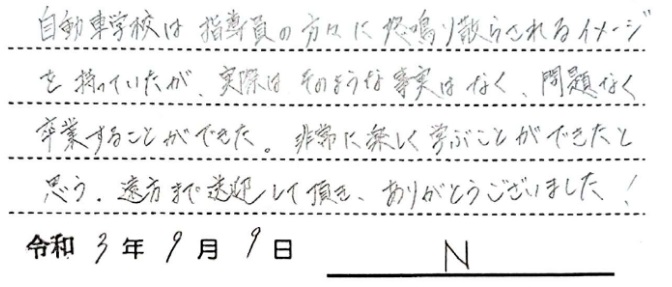 自動車学校は指導員の方々に怒鳴り散らされるイメージ
を持っていたが、実際はそのような事実はなく、問題なく
卒業することができた。非常に楽しく学ぶことができたと
思う。遠方まで送迎して頂き、ありがとうございました!
令和 3 年 9 月 9 日 N